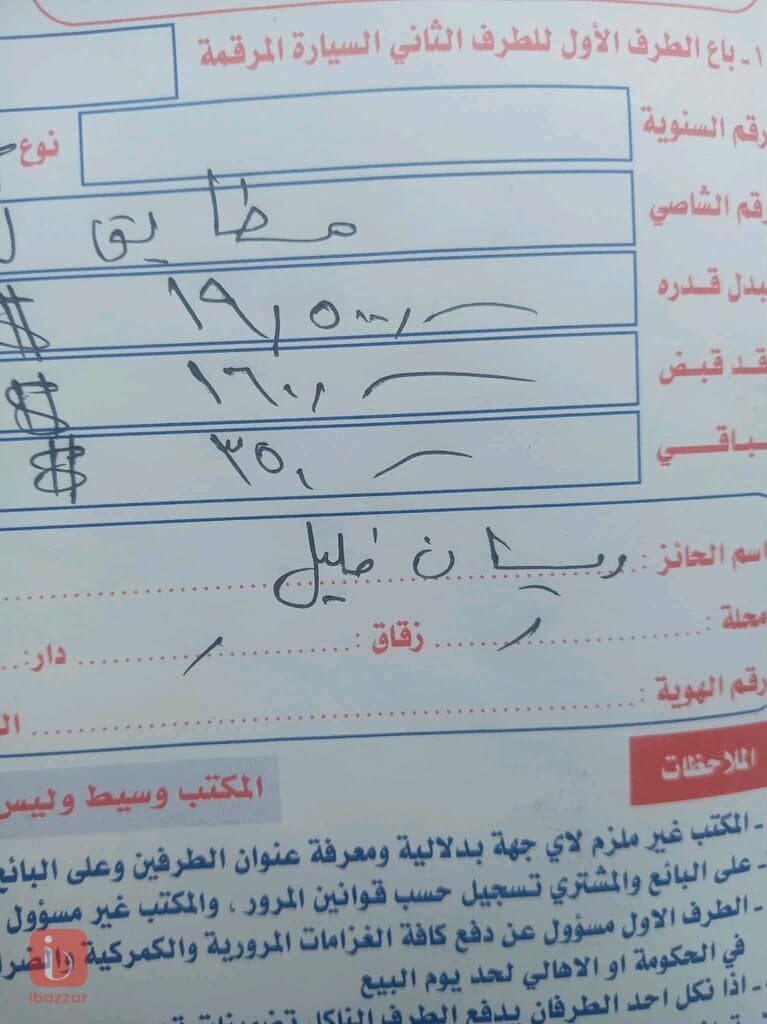 ١- باع الطرف الأول للطرف الثاني السيارة المرقمة
رقم السنوية نوع
رقم الشاصي مطابق
ببدل قدره ١٩,٥٠٠, $
قد قبض ١٦٠, $
الباقي ٣٥٠, $
اسم الحائز : ريسان خليل
محلة : / زقاق : / دار:
رقم الهوية :
الملاحظات
المكتب وسيط وليس
- المكتب غير ملزم لاي جهة بدلالية ومعرفة عنوان الطرفين وعلى البائع
- على البائع والمشتري تسجيل حسب قوانين المرور ، والمكتب غير مسؤول
- الطرف الاول مسؤول عن دفع كافة الغزامات المرورية والكمركية
في الحكومة او الاهالي لحد يوم البيع
- اذا نكل احد الطرفان يدفع الطرف الناكل
ibazzar